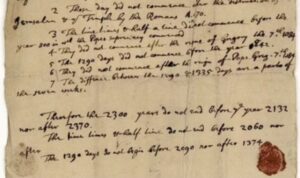 2 Those day did not commence after the destruction of
Jerusalem & ye Temple by the Romans A.70.
3 The time times & half a time did not commence before the
year 800 in wch the Popes supremacy commenced
4 They did not commence after the reign of Gregory the 7th. 1084
5 The 1290 days did not commence before the year 842.
6 They did not commence after the reign of Pope Greg. 7th. 1084
7 The difference between the 1290 & 1335 days are a parts of
the seven weeks.
Therefore the 2300 years do not end before ye year 2132
nor after 2370.
The time times & half time do not end before 2060 nor
after
The 1290 days do not begin before 2090 nor after 1374